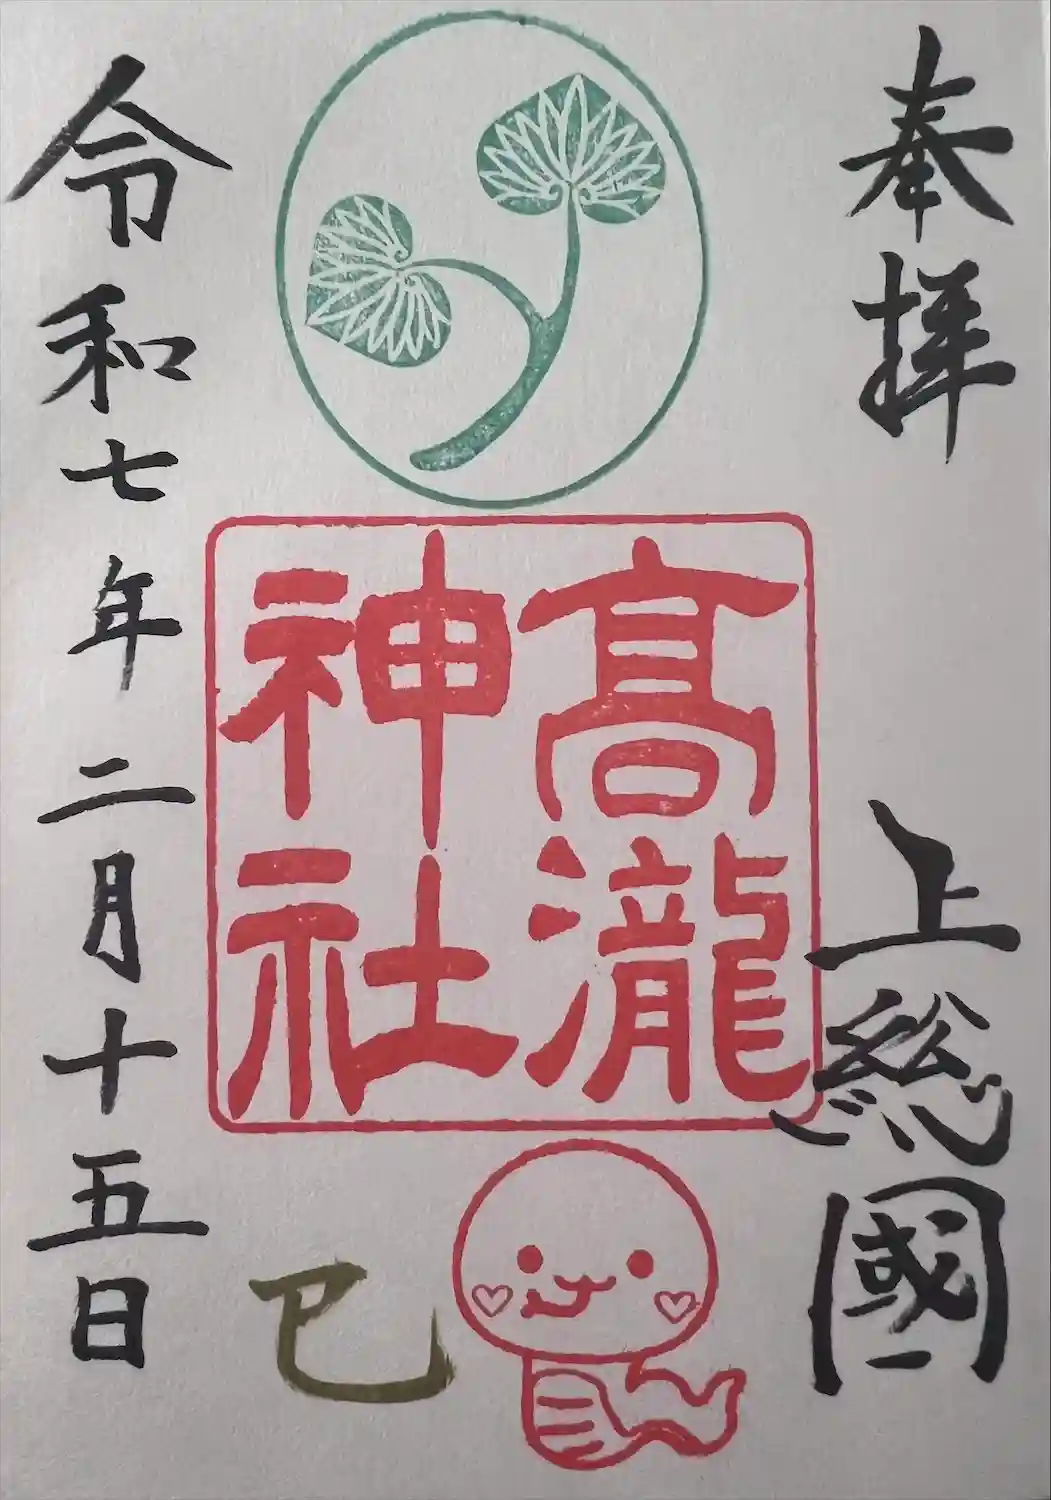 奉拝
上総國
髙瀧
神社
巳
令和七年二月十五日